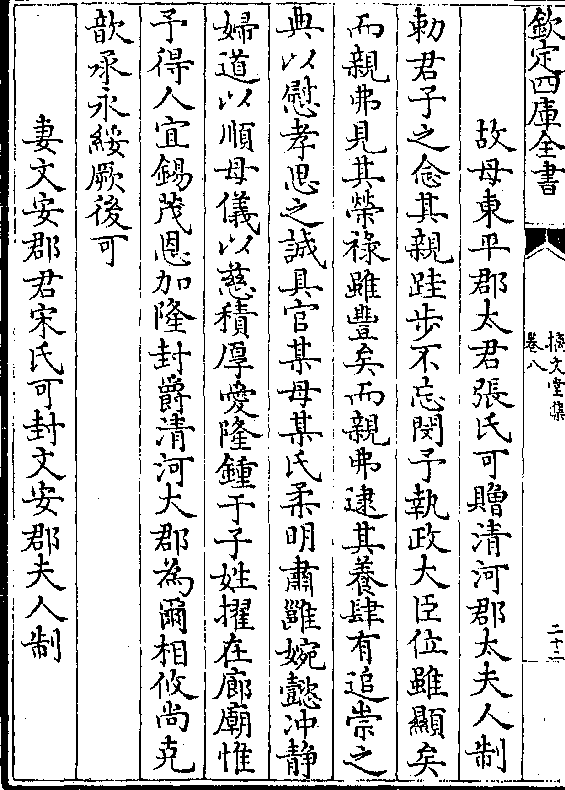 欽定四庫全書
摛文堂集
卷八
二十二
故母東平郡太君張氏可贈清河郡太夫人制
勅君子之念其親跬步不忘閔予執政大臣位雖顯矣
而親弗見其榮祿雖豐矣而親弗逮其養肆有追崇之
典以慰孝思之誠具官某母某氏柔明肅雝婉懿冲静
婦道以順母儀以慈積厚愛隆鍾于子姓擢在廊廟惟
予得人宜錫茂恩加隆封爵清河大郡為爾相攸尚克
歆承永綏厥後可
妻文安郡君宋氏可封文安郡夫人制